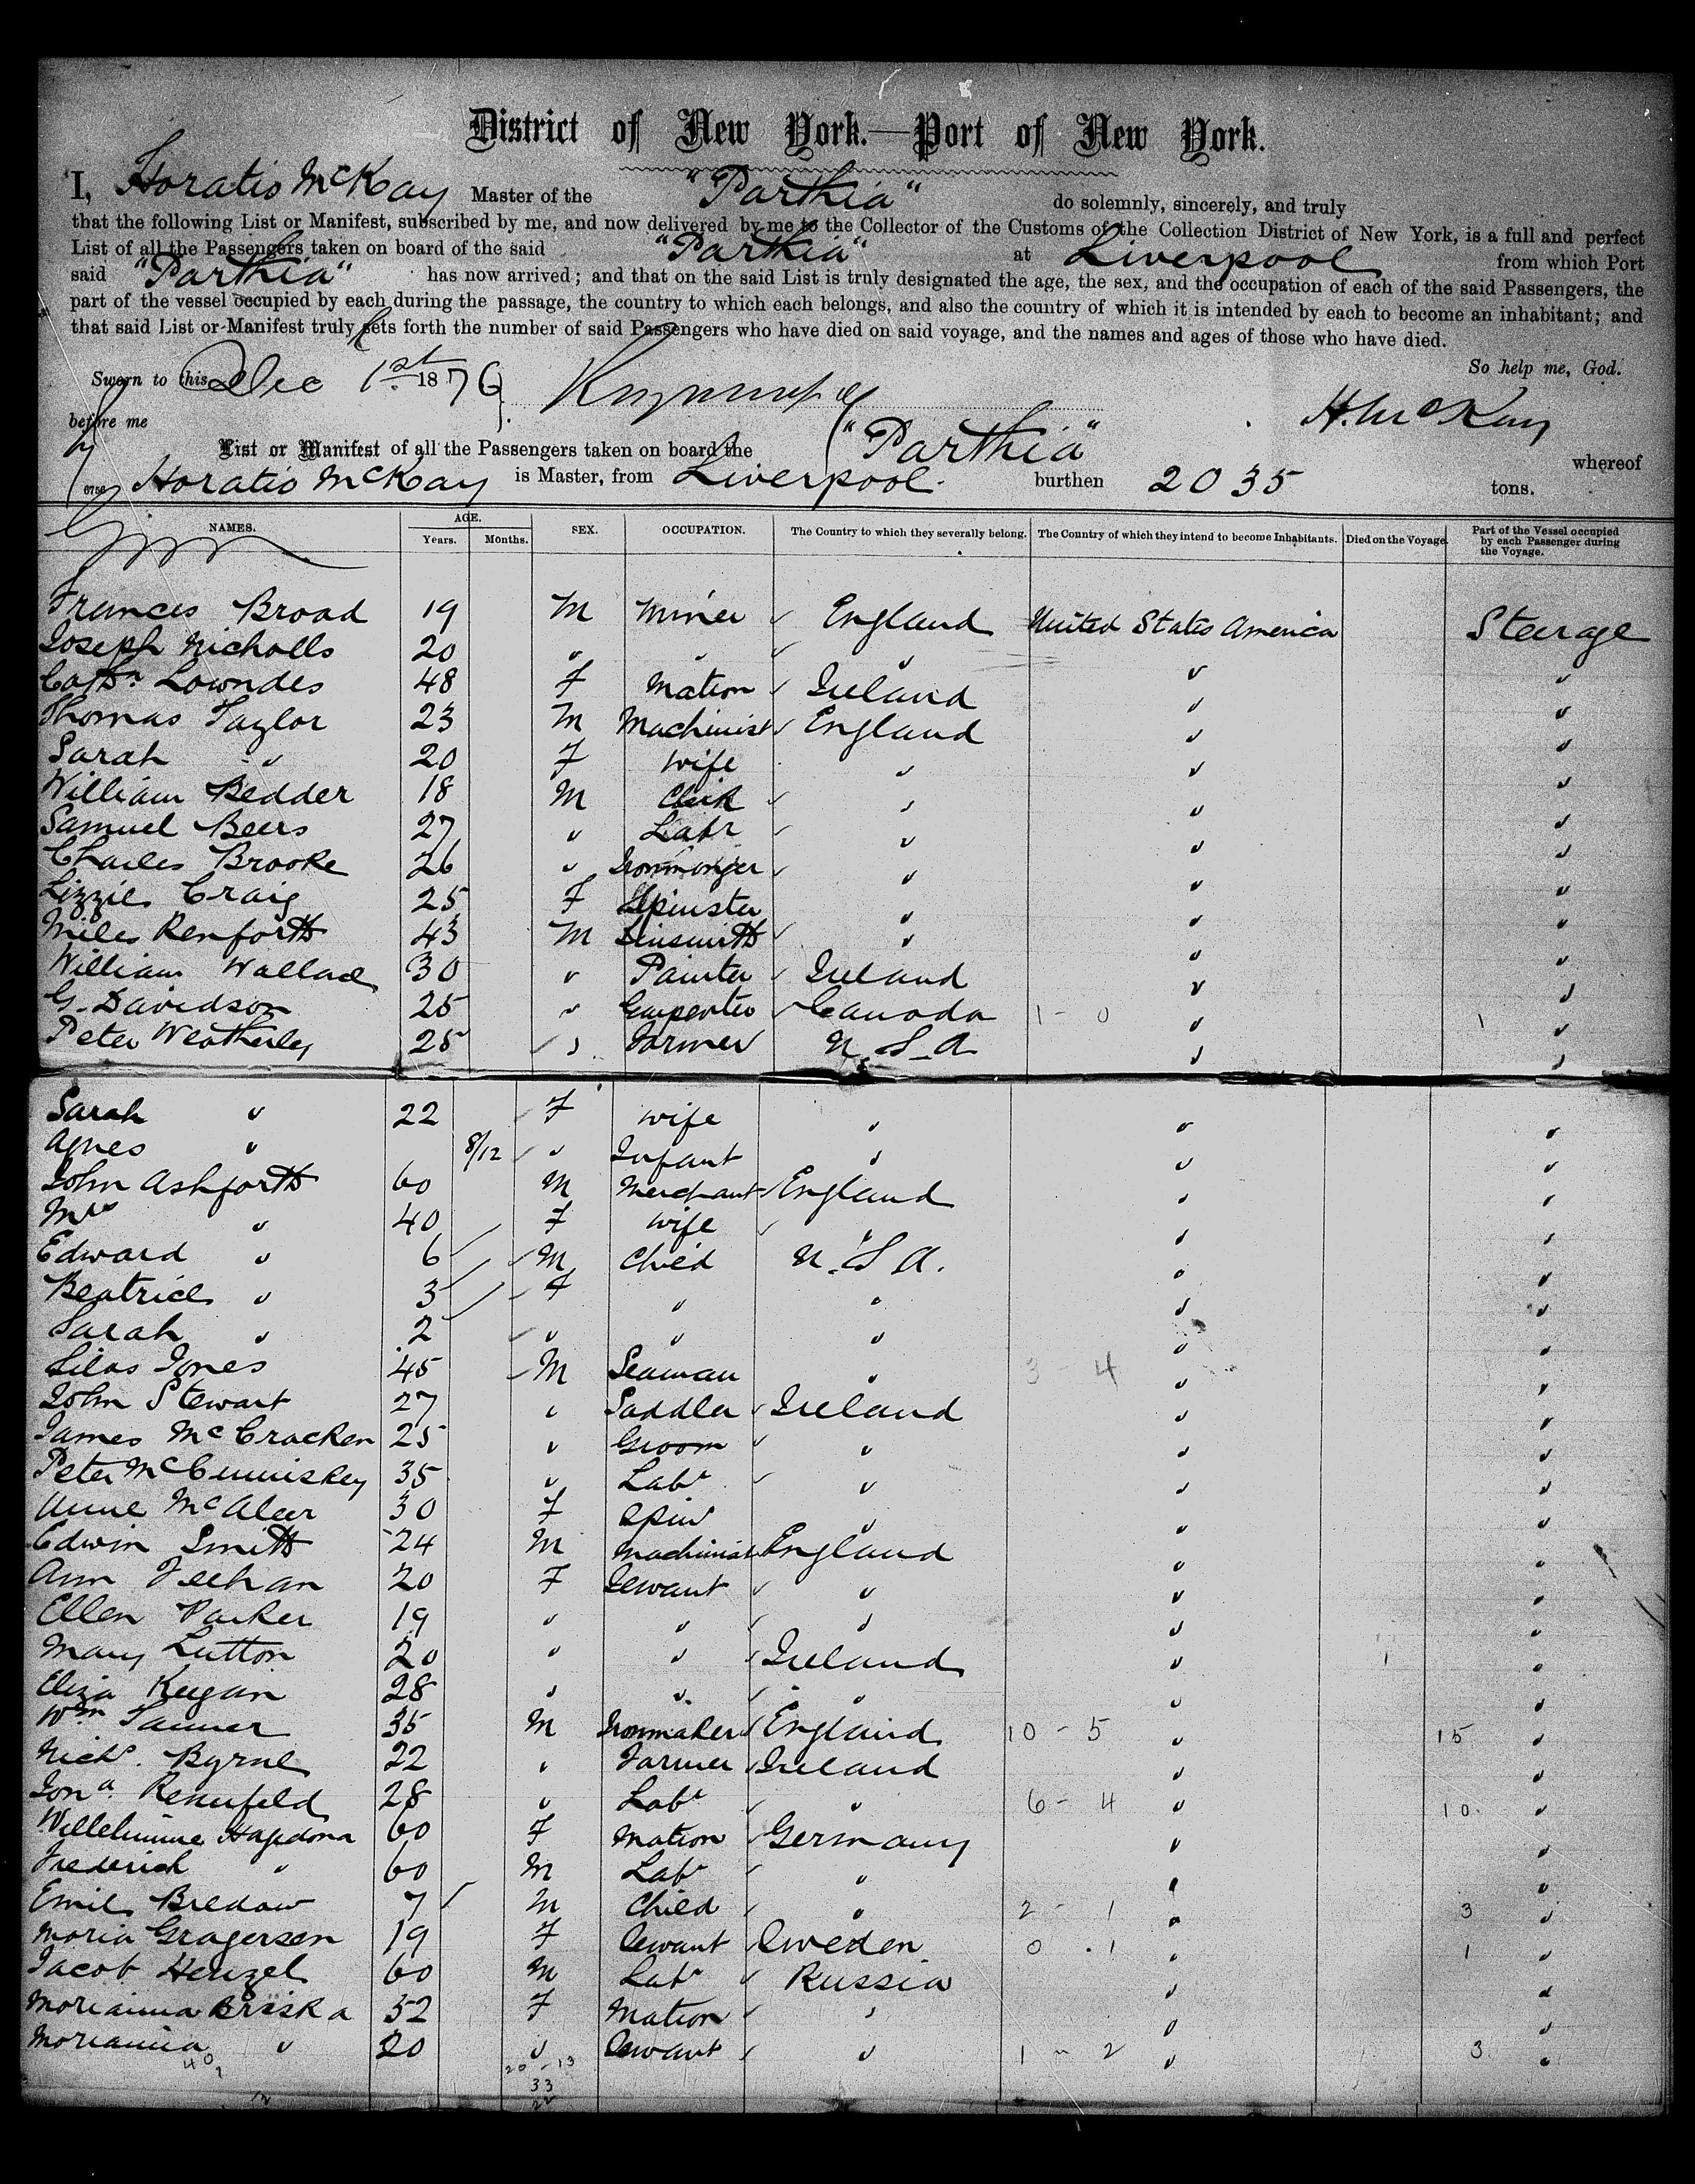 District of New York.—Port of New York.
I, Horatio McKay Master of the "Parthia" do solemnly, sincerely, and truly
that the following List or Manifest, subscribed by me, and now delivered by me to the Collector of the Customs of the Collection District of New York, is a full and perfect
List of all the Passengers taken on board of the said "Parthia" at Liverpool from which Port
said "Parthia" has now arrived; and that on the said List is truly designated the age, the sex, and the occupation of each of the said Passengers, the
part of the vessel occupied by each during the passage, the country to which each belongs, and also the country of which it is intended by each to become an inhabitant; and
that said List or Manifest truly sets forth the number of said Passengers who have died on said voyage, and the names and ages of those who have died.
So help me, God.
Sworn to this Dec 1st 1876
before me H. McKay
List or Manifest of all the Passengers taken on board the "Parthia" whereof
6756 Horatio McKay is Master, from Liverpool. burthen 2035 tons.
NAMES. AGE. Years. Months. SEX. OCCUPATION. The Country to which they severally belong. The Country of which they intend to become Inhabitants. Died on the Voyage. Part of the Vessel occupied by each Passenger during the Voyage.
Frances Broad 19 M Miner England United States America Steerage
Joseph Nicholls 20 " " " " "
Cathn Lowndes 48 F Matron Ireland " "
Thomas Taylor 23 M Machinist England " "
Sarah " 20 F Wife " " "
William Bedder 18 M Clerk " " "
Samuel Beers 27 " Labr " " "
Charles Brooke 26 " Ironmonger " " "
Lizzie Craig 25 F Spinster " " "
Miles Renforth 43 M Tinsmith " " "
William Wallace 30 " Painter Ireland " "
G. Davidson 25 " Carpenter Canada 1 - 0 " 1 "
Peter Weatherley 25 " Farmer U.S.A. " "
Sarah " 22 F Wife " " "
Agnes " 8/12 " Infant " " "
John Ashforth 60 M Merchant England " "
Mrs " 40 F Wife " " "
Edward " 6 M Child U.S.A. " "
Beatrice " 3 F " " " "
Sarah " 2 " " " " "
Silas Jones 45 M Seaman " 3 4 " "
John Stewart 27 " Saddler Ireland " "
James McCracken 25 " Groom " " "
Peter McCumiskey 35 " Labr " " "
Anne McAleer 30 F Spin " " "
Edwin Smith 24 M Machinist England " "
Ann Feehan 20 F Servant " " "
Ellen Parker 19 " " " " "
Mary Lutton 20 " " Ireland " "
Eliza Keegan 28 " " " " "
Wm Tanner 35 M Ironmaker England 10 - 5 " 15 "
Nichs. Byrne 22 " Farmer Ireland " "
Jona. 28 " Labr " 6 - 4 " 10 "
Hagedorn 60 F Matron Germany " "
Frederick " 60 M Labr " " "
Emil Bredow 7 M Child " 2 - 1 " 3 "
Maria Gragersen 19 F Servant Sweden 0 . 1 " 1 "
Jacob Henzel 60 M Labr Russia " "
Morianna Briska 52 F Matron " " "
Morianna " 20 " Servant " 1 - 2 " 3 "
20 - 13
33